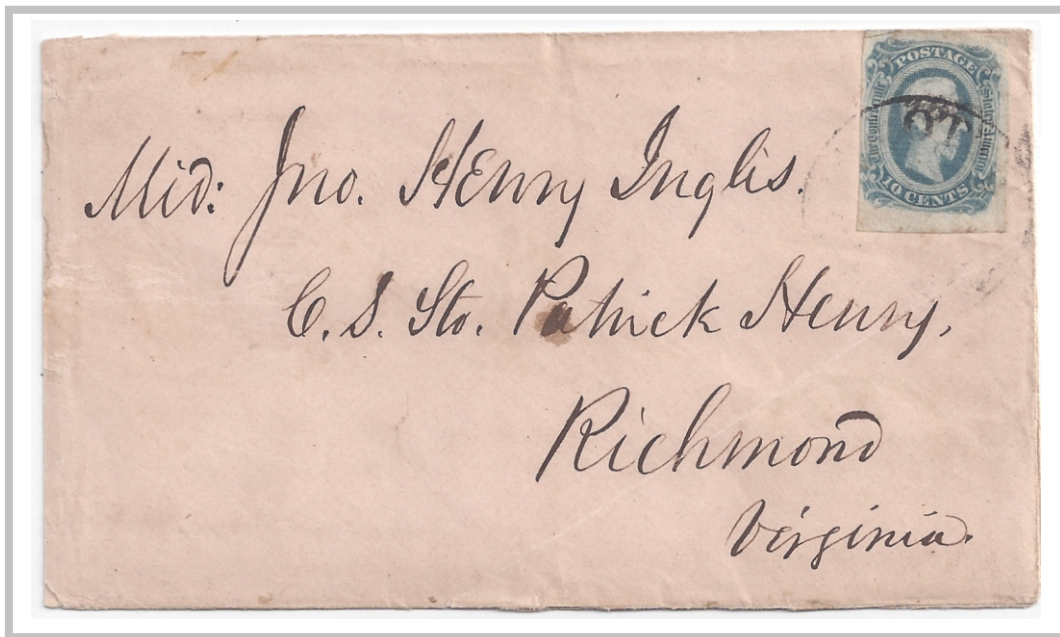 POSTAGE
The Confederate States of America
10 CENTS
Mid: Jno. Henry Inglis.
C. S. Str. Patrick Henry,
Richmond
Virginia.